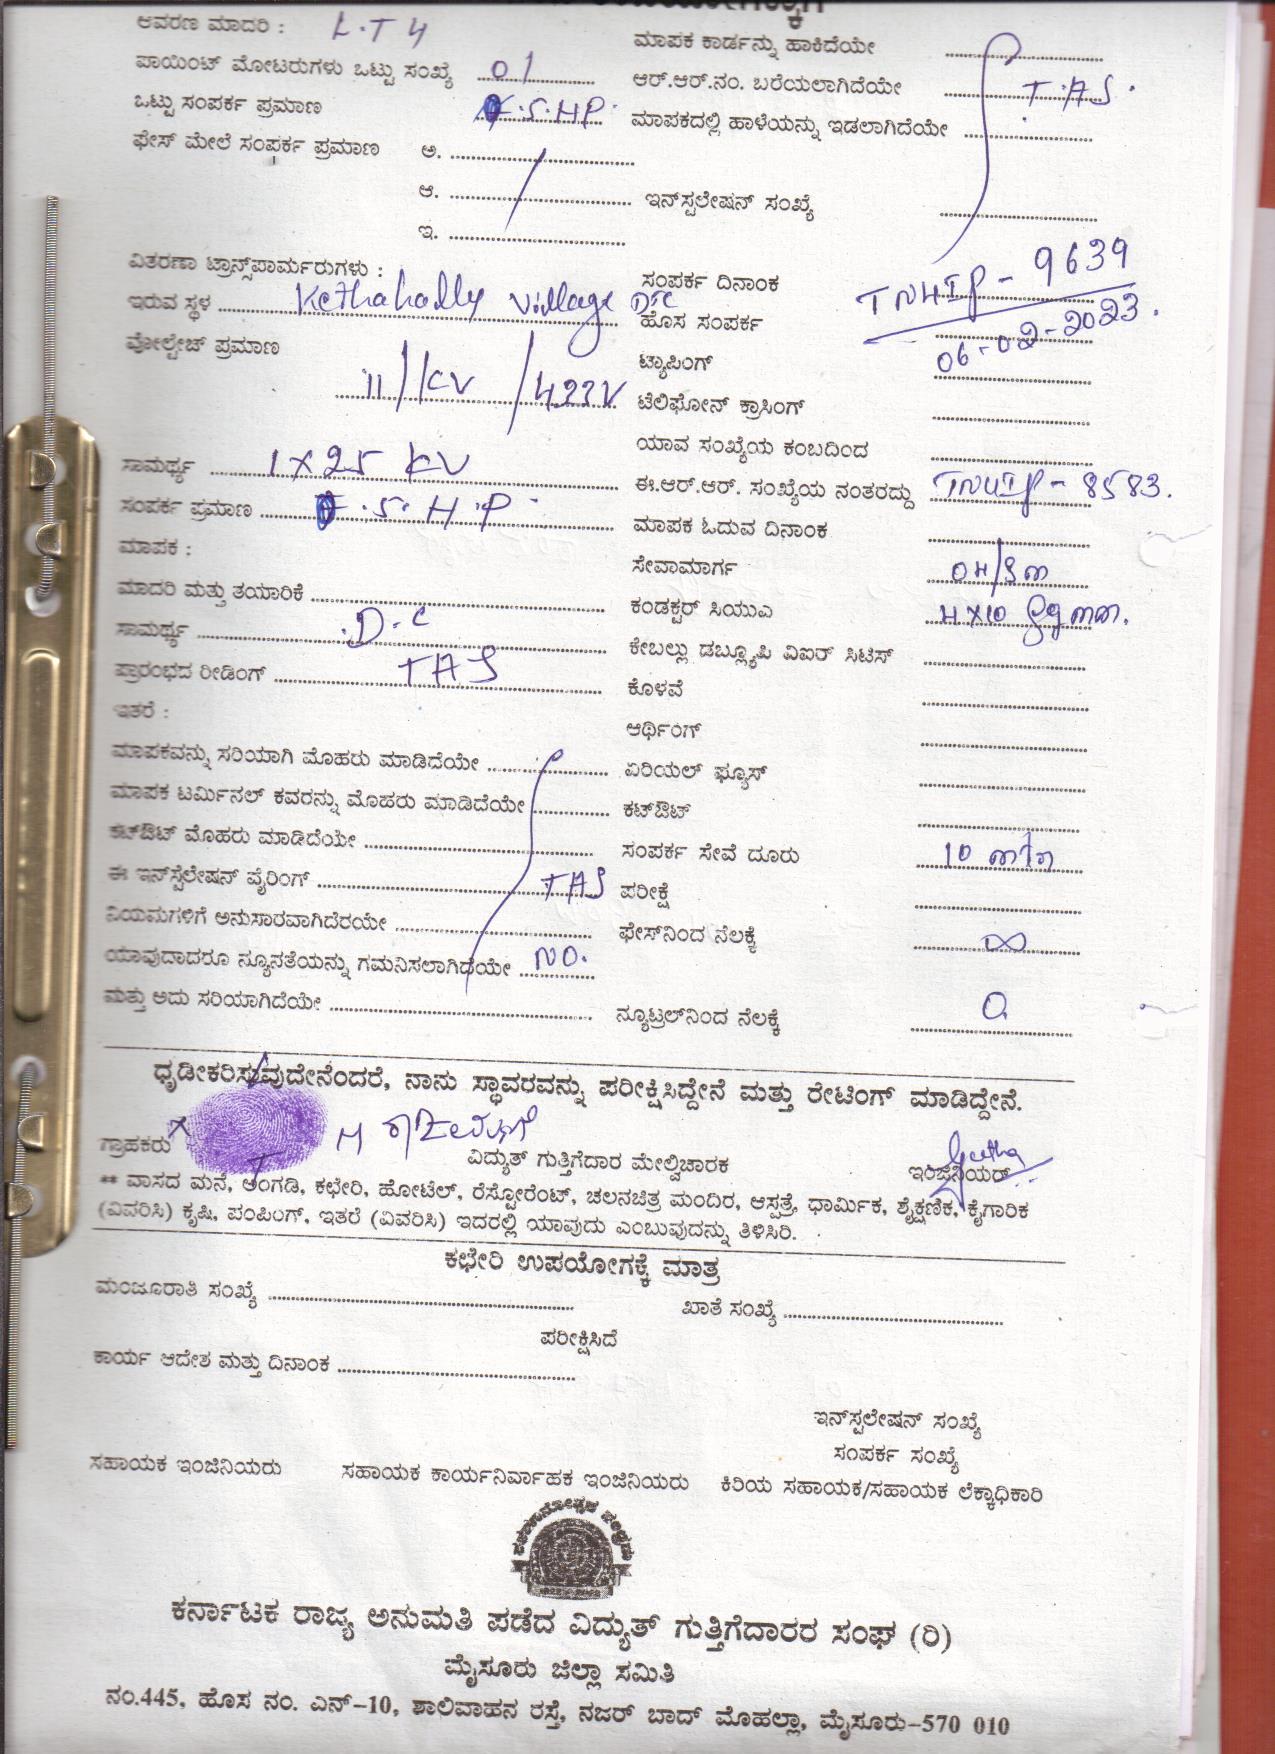 ಆವರಣ ಮಾದರಿ : L.T 4
ಮಾಪಕ ಕಾರ್ಡನ್ನು ಹಾಕಿದೆಯೇ
ಪಾಯಿಂಟ್ ಮೋಟರುಗಳು ಒಟ್ಟು ಸಂಖ್ಯೆ 01
ಆರ್.ಆರ್.ನಂ. ಬರೆಯಲಾಗಿದೆಯೇ
ಒಟ್ಟು ಸಂಪರ್ಕ ಪ್ರಮಾಣ .5.HP.
ಮಾಪಕದಲ್ಲಿ ಹಾಳೆಯನ್ನು ಇಡಲಾಗಿದೆಯೇ
ಫೇಸ್ ಮೇಲೆ ಸಂಪರ್ಕ ಪ್ರಮಾಣ ಅ.
ಆ. ಇನ್‌ಸ್ಟಲೇಷನ್ ಸಂಖ್ಯೆ
ಇ.
ವಿತರಣಾ ಟ್ರಾನ್ಸ್‌ಪಾರ್ಮರುಗಳು :
ಸಂಪರ್ಕ ದಿನಾಂಕ TN4IP - 9639
ಇರುವ ಸ್ಥಳ Kethahally Village
ಹೊಸ ಸಂಪರ್ಕ 06-02-2023.
ವೋಲ್ಟೇಜ್ ಪ್ರಮಾಣ 11/KV /433V
ಟ್ಯಾಪಿಂಗ್
ಟೆಲಿಫೋನ್ ಕ್ರಾಸಿಂಗ್
ಯಾವ ಸಂಖ್ಯೆಯ ಕಂಬದಿಂದ
ಸಾಮರ್ಥ್ಯ 1 X 25 KV
ಈ.ಆರ್.ಆರ್. ಸಂಖ್ಯೆಯ ನಂತರದ್ದು TN4IP - 8583.
ಸಂಪರ್ಕ ಪ್ರಮಾಣ .5.H.P
ಮಾಪಕ ಓದುವ ದಿನಾಂಕ
ಮಾಪಕ :
ಸೇವಾಮಾರ್ಗ
ಮಾದರಿ ಮತ್ತು ತಯಾರಿಕೆ
ಕಂಡಕ್ಟರ್ ಸಿಯುಎ 4 X 10 sqmm.
ಸಾಮರ್ಥ್ಯ D.C
ಕೇಬಲ್ಲು ಡಬ್ಲ್ಯೂಪಿ ವಿಐರ್ ಸಿಟಿಸ್
ಪ್ರಾರಂಭದ ರೀಡಿಂಗ್
ಕೊಳವೆ
ಇತರೆ :
ಆರ್ಥಿಂಗ್
ಮಾಪಕವನ್ನು ಸರಿಯಾಗಿ ಮೊಹರು ಮಾಡಿದೆಯೇ
ಏರಿಯಲ್ ಫ್ಯೂಸ್
ಮಾಪಕ ಟರ್ಮಿನಲ್ ಕವರನ್ನು ಮೊಹರು ಮಾಡಿದೆಯೇ
ಕಟ್‌ಔಟ್
ಕಟ್‌ಔಟ್ ಮೊಹರು ಮಾಡಿದೆಯೇ
ಸಂಪರ್ಕ ಸೇವೆ ದೂರು 10 mtr
ಈ ಇನ್‌ಸ್ಟಲೇಷನ್ ವೈರಿಂಗ್
ಪರೀಕ್ಷೆ
ನಿಯಮಗಳಿಗೆ ಅನುಸಾರವಾಗಿದೆರಯೇ
ಫೇಸ್‌ನಿಂದ ನೆಲಕ್ಕೆ ∞
ಯಾವುದಾದರೂ ನ್ಯೂನತೆಯನ್ನು ಗಮನಿಸಲಾಗಿದೆಯೇ NO.
ಮತ್ತು ಅದು ಸರಿಯಾಗಿದೆಯೇ
ನ್ಯೂಟ್ರಲ್‌ನಿಂದ ನೆಲಕ್ಕೆ 0
ಧೃಡೀಕರಿಸುವುದೇನೆಂದರೆ, ನಾನು ಸ್ಥಾವರವನ್ನು ಪರೀಕ್ಷಿಸಿದ್ದೇನೆ ಮತ್ತು ರೇಟಿಂಗ್ ಮಾಡಿದ್ದೇನೆ.
Geetha
ಗ್ರಾಹಕರು ವಿದ್ಯುತ್ ಗುತ್ತಿಗೆದಾರ ಮೇಲ್ವಿಚಾರಕ ಇಂಜಿನಿಯರ್
** ವಾಸದ ಮನೆ, ಅಂಗಡಿ, ಕಛೇರಿ, ಹೋಟೆಲ್, ರೆಸ್ಟೋರೆಂಟ್, ಚಲನಚಿತ್ರ ಮಂದಿರ, ಆಸ್ಪತ್ರೆ, ಧಾರ್ಮಿಕ, ಶೈಕ್ಷಣಿಕ, ಕೈಗಾರಿಕ
(ವಿವರಿಸಿ) ಕೃಷಿ, ಪಂಪಿಂಗ್, ಇತರೆ (ವಿವರಿಸಿ) ಇದರಲ್ಲಿ ಯಾವುದು ಎಂಬುವುದನ್ನು ತಿಳಿಸಿರಿ.
ಕಛೇರಿ ಉಪಯೋಗಕ್ಕೆ ಮಾತ್ರ
ಮಂಜೂರಾತಿ ಸಂಖ್ಯೆ ಖಾತೆ ಸಂಖ್ಯೆ
ಪರೀಕ್ಷಿಸಿದೆ
ಕಾರ್ಯ ಆದೇಶ ಮತ್ತು ದಿನಾಂಕ
ಇನ್‌ಸ್ಟಲೇಷನ್ ಸಂಖ್ಯೆ
ಸಂಪರ್ಕ ಸಂಖ್ಯೆ
ಸಹಾಯಕ ಇಂಜಿನಿಯರು ಸಹಾಯಕ ಕಾರ್ಯನಿರ್ವಾಹಕ ಇಂಜಿನಿಯರು ಕಿರಿಯ ಸಹಾಯಕ/ಸಹಾಯಕ ಲೆಕ್ಕಾಧಿಕಾರಿ
ಕರ್ನಾಟಕ ರಾಜ್ಯ ಅನುಮತಿ ಪಡೆದ ವಿದ್ಯುತ್ ಗುತ್ತಿಗೆದಾರರ ಸಂಘ (ರಿ)
ಮೈಸೂರು ಜಿಲ್ಲಾ ಸಮಿತಿ
ನಂ.445, ಹೊಸ ನಂ. ಎನ್-10, ಶಾಲಿವಾಹನ ರಸ್ತೆ, ನಜರ್ ಬಾದ್ ಮೊಹಲ್ಲಾ, ಮೈಸೂರು-570 010